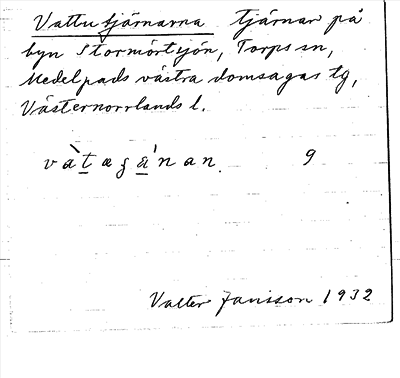 Vattutjärnarna tjärnar på
byn Stormörtsjön, Torps sn,
Medelpads västra domsagas tg,
Västernorrlands l.
vàtægánan. 9
Valter Jansson 1932